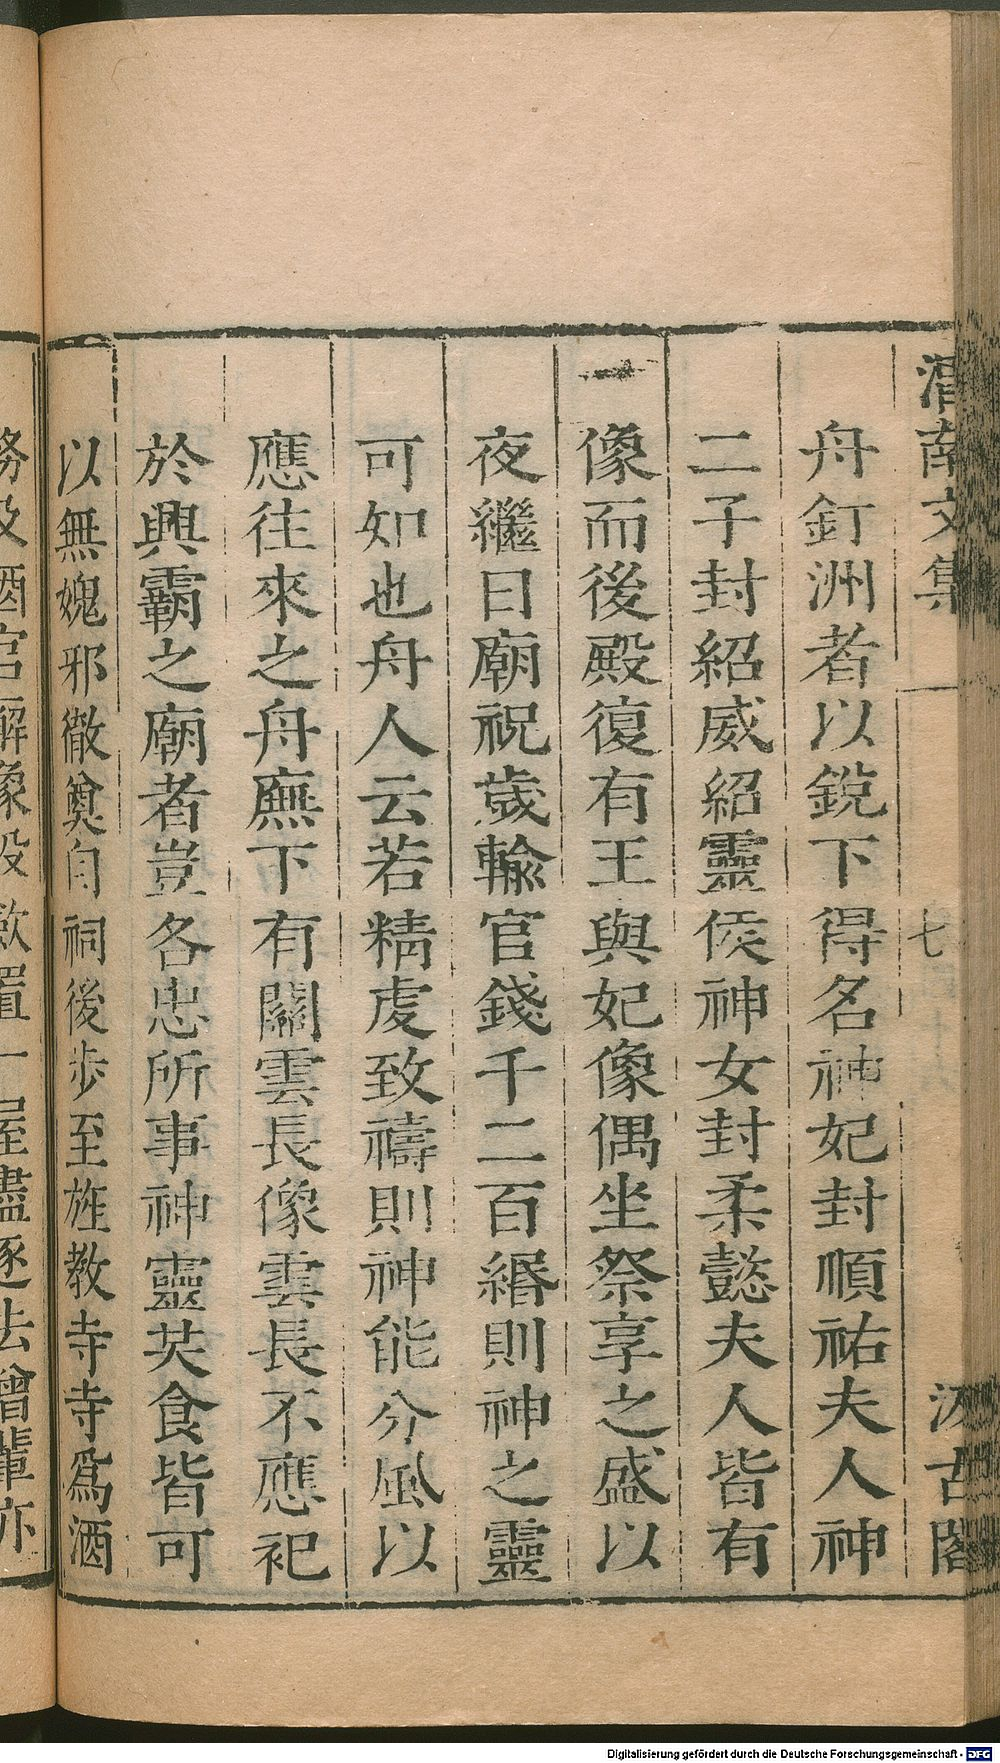 渭南文集 七 汲古閣
舟釘洲者以銳下得名神妃封順祐夫人神
二子封紹威紹靈侯神女封柔懿夫人皆有
像而後殿復有王與妃像偶坐祭享之盛以
夜繼日廟祝歲輸官錢千二百緡則神之靈
可如也舟人云若精虔致禱則神能分風以
應往來之舟廡下有關雲長像雲長不應祀
於興霸之廟者豈各忠所事神靈共食皆可
以無媿邪徹奠自祠後步至旌教寺寺爲酒
務及酒官廨像設斂置一屋盡逐去僧輩亦
Digitalisierung gefördert durch die Deutsche Forschungsgemeinschaft - DFG